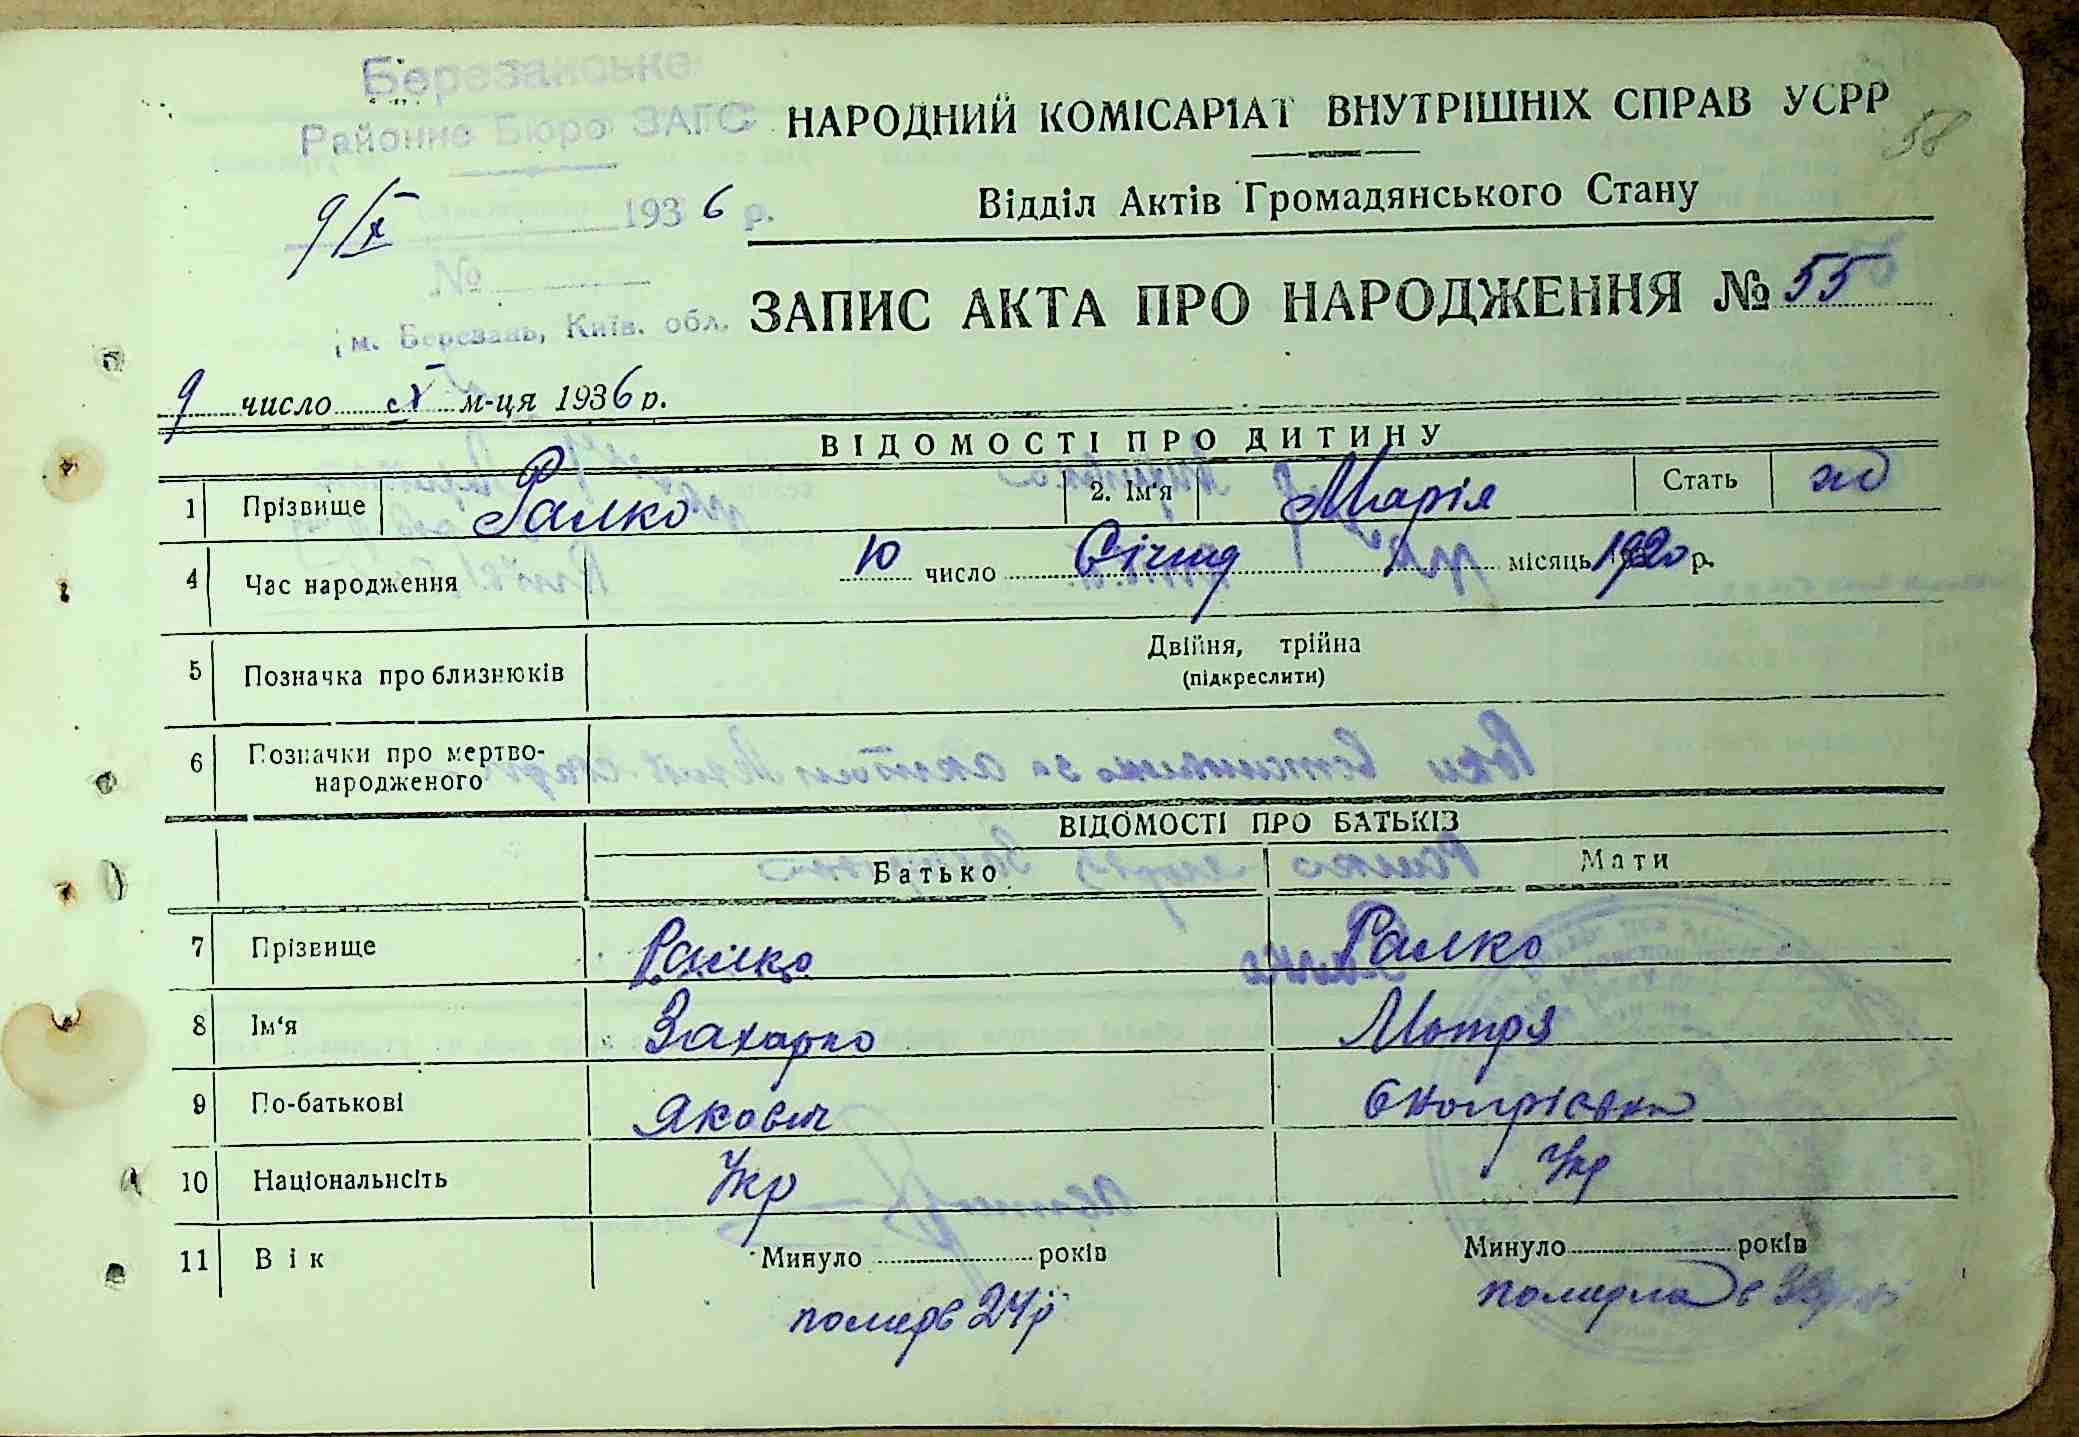 Березанське
Районне Бюро ЗАГС
9/X 1936 р.
№
м. Березань, Київ. обл.
НАРОДНИЙ КОМІСАРІАТ ВНУТРІШНІХ СПРАВ УСРР
58
Відділ Актів Громадянського Стану
ЗАПИС АКТА ПРО НАРОДЖЕННЯ № 55
9 число X м-ця 1936 р.
ВІДОМОСТІ ПРО ДИТИНУ
1 Прізвище Ралко 2. Ім'я Марія Стать жо
4 Час народження 10 число Січня місяць 1920 р.
5 Позначка про близнюків Двійня, трійна
(підкреслити)
6 Позначки про мертво-
народженого
ВІДОМОСТІ ПРО БАТЬКІВ
Батько Мати
7 Прізвище Ралко Ралко
8 Ім'я Захарко Мотря
9 По-батькові Якович
10 Національність Укр Укр
11 Вік Минуло років Минуло років
помер в 24р померла в